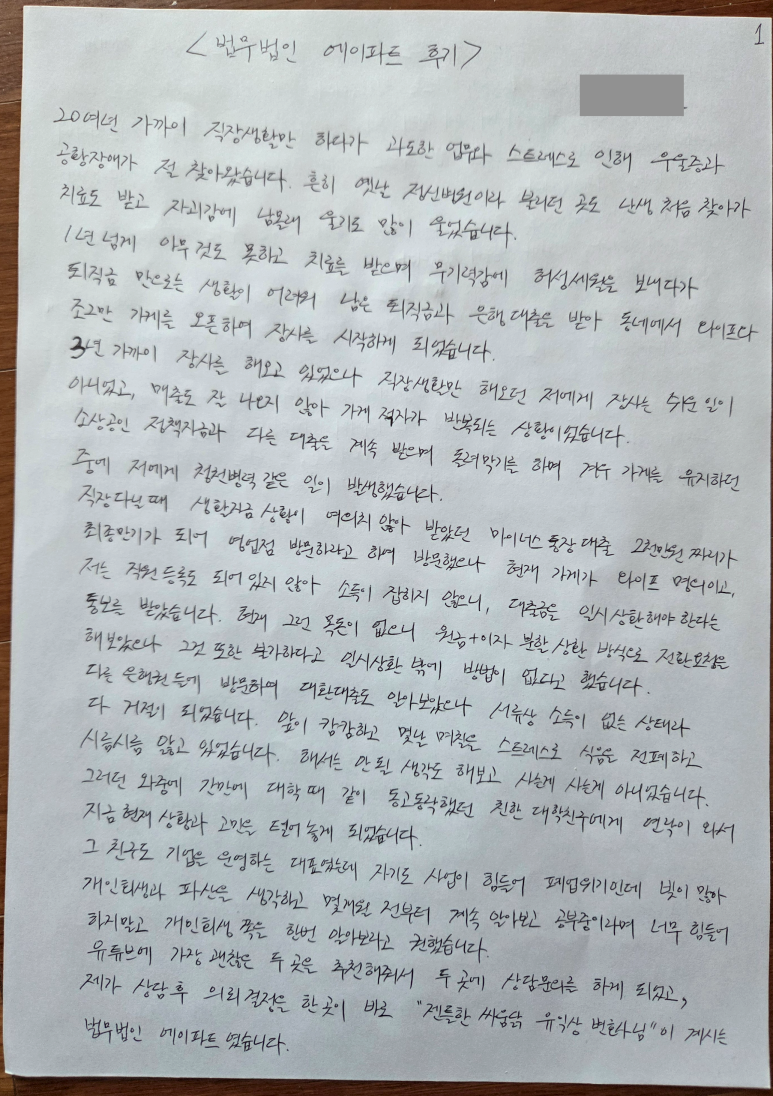 1
<법무법인 에이파트 후기>
20여년 가까이 직장생활만 하다가 과도한 업무와 스트레스로 인해 우울증과
공황장애가 절 찾아왔습니다. 흔히 옛날 정신병원이라 불리던 곳도 난생 처음 찾아가
치료도 받고 자괴감에 남몰래 울기도 많이 울었습니다.
1년 넘게 아무것도 못하고 치료를 받으며 무기력감에 허성세월을 보내다가
퇴직금 만으로는 생활이 어려워 남은 퇴직금과 은행대출을 받아 동네에서 와이프다
조그만 가게를 오픈하여 장사를 시작하게 되었습니다.
3년 가까이 장사를 해오고 있었으나 직장생활만 해오던 저에게 장사는 쉬운 일이
아니었고, 매출도 잘 나오지 않아 가게 적자가 반복되는 상황이었습니다.
소상공인 정책자금과 다른 대출을 계속 받으며 돌려막기를 하며 겨우 가게를 유지하던
중에 저에게 청천병력 같은 일이 발생했습니다.
직장다닐때 생활자금 상황이 여의치않아 받았던 마이너스 통장 대출 2천만원 짜리가
최종만기가 되어 영업점 방문하라고 하여 방문했으나 현재 가게가 와이프 명의이고,
저는 직원등록도 되어있지 않아 소득이 잡히지 않으니, 대출금을 일시상환해야 한다는
통보를 받았습니다. 현재 그런 목돈이 없으니 원금+이자 분할상환 방식으로 전환요청을
해보았으나 그것 또한 불가하다고 일시상환 밖에 방법이 없다고 했습니다.
다른 은행권 등에 방문하여 대환대출도 알아보았으나 서류상 소득이 없는 상태라
다 거절이 되었습니다. 앞이 캄캄하고 몇날 며칠을 스트레스로 식음을 전폐하고
시름시름 앓고 있었습니다. 해서는 안될 생각도 해보고 사는게 사는게 아니었습니다.
그러던 와중에 간만에 대학때 같이 동고동락했던 친한 대학친구에게 연락이 와서
지금 현재 상황과 고민을 털어놓게 되었습니다.
그 친구도 기업을 운영하는 대표였는데 자기도 사업이 힘들어 폐업위기인데 빚이 많아
개인회생과 파산을 생각하고 몇개월 전부터 계속 알아보고 공부중이라며 너무 힘들어
하지말고 개인회생 쪽을 한번 알아보라고 권했습니다.
유튜브에 가장 괜찮은 두곳을 추천해줘서 두곳에 상담문의를 하게 되었고,
제가 상담후 의뢰결정을 한곳이 바로 "젠틀한 싸움닭 유익상 변호사님"이 계시는
법무법인 에이파트였습니다.